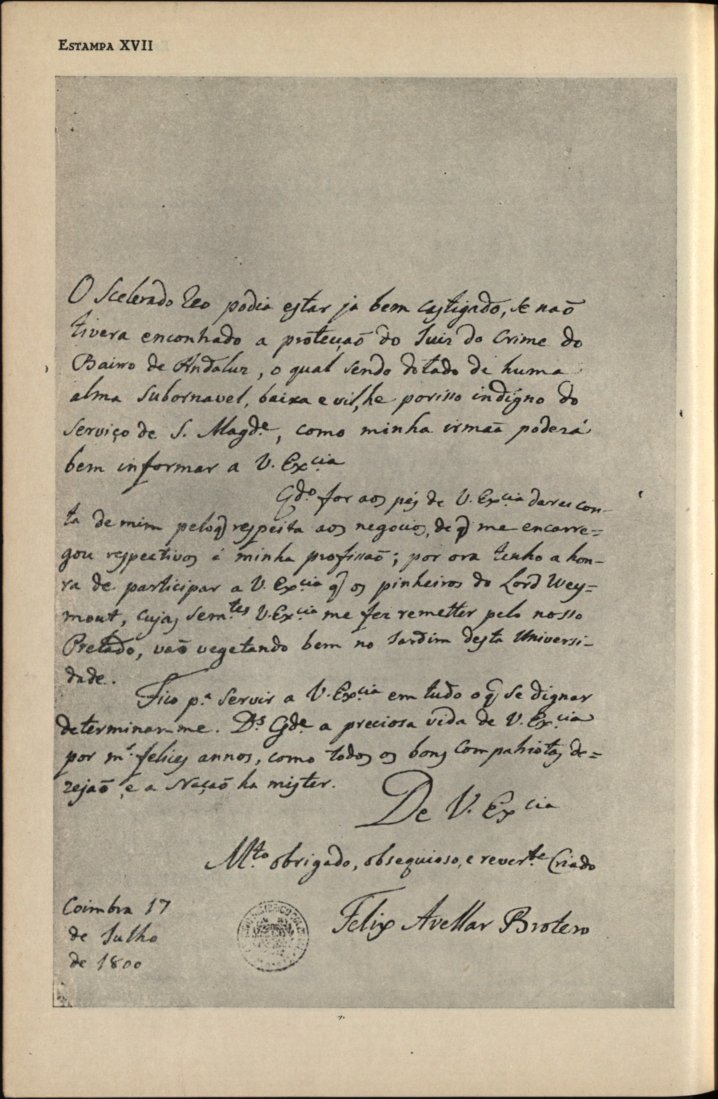 ESTAMPA XVII
O Scelerado Reo podia estar ja bem castigado, se naõ
tivera encontrado a protecçaõ do Juis do Crime do
Bairro de Andaluz, o qual sendo dotado de huma
alma subornavel, baixa e vil, he porisso indigno do
serviço de S. Magde, como minha irmaã poderá
bem informar a V. Excia
Qdo for aos pés de V. Excia darei con-
ta de mim pelo q̃ respeita aos negocios, de q̃ me encarre=
gou respectivos á minha profissaõ; por ora tenho a hon-
ra de participar a V. Excia q̃ os pinheiros do Lord Wey=
mout, cujas semtes V. Excia me fez remetter pelo nosso
Prelado, vaõ vegetando bem no Jardim desta Universi-
dade.
Fico pa servir a V. Excia em tudo o q̃ se dignar
determinar-me. Ds Gde a preciosa vida de V. Excia
por ms felices annos, como todos os bons compatriotas de=
zejaõ, e a Naçaõ ha mister.
De V. Excia
Mto obrigado, obsequioso, e reverte Criado
Coimbra 17
de Julho
de 1800
Felix Avellar Brotero